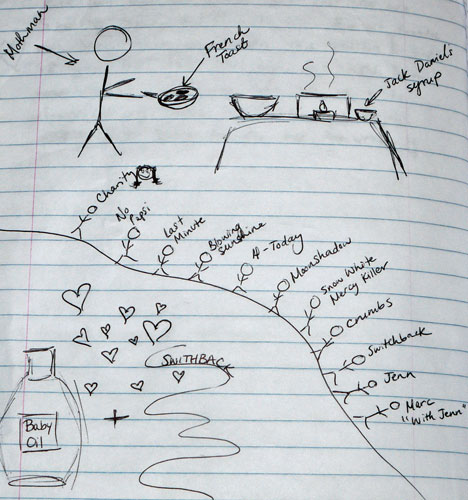 Mothman
French
Toast
Jack Daniels
syrup
Charity
No
Pepsi
Last
Minute
Blowing
Sunshine
4-Today
Moonshadow
Snow White
Mercy Killer
Crumbs
Switchback
Jenn
Marc
"With Jenn"
SWITHBACK
Baby
Oil
+